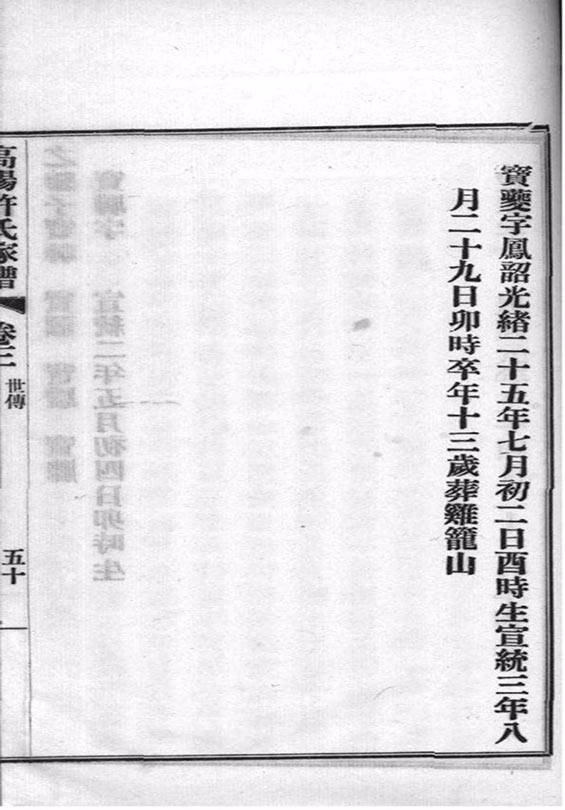 寶夔字鳳韶光緒二十五年七月初二日酉時生宣統三年八
月二十九日卯時卒年十三歲葬雞籠山
高陽許氏家譜
卷三
世傳
五十